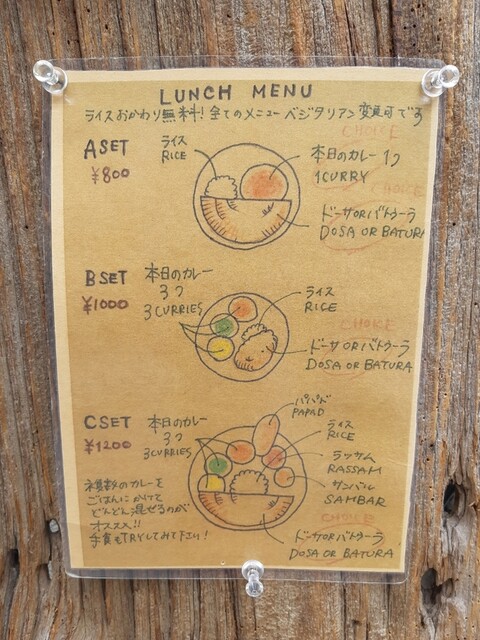 LUNCH MENU
ライスおかわり無料!全てのメニューベジタリアン変更可できる
A SET
¥800
ライス
RICE
CHOICE
本日のカレー1つ
1CURRY
CHOICE
ドーサORバトゥーラ
DOSA OR BATURA
B SET
¥1000
本日のカレー
3つ
3CURRIES
ライス
RICE
CHOICE
ドーサORバトゥーラ
DOSA OR BATURA
C SET
¥1200
本日のカレー
3つ
3CURRIES
パパド
PAPAD
ライス
RICE
ラッサム
RASSAM
サンバル
SAMBAR
CHOICE
ドーサORバトゥーラ
DOSA OR BATURA
複数のカレーを
ごはんにかけて
どんどん混ぜるのが
オススメ!!
手食もTRYしてみて下さい!